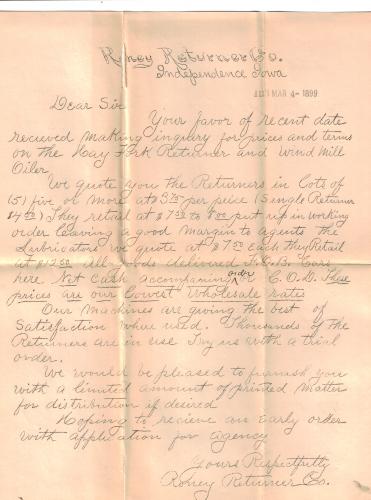 Roney Returner Co.
Independence Iowa
MAR 4- 1899
Dear Sir
Your favor of recent date
recieved making inquiry for prices and terms
on the Hay Fork Returner and Wind Mill
Oiler.
We quote you the Returners in Lots of
(5) five or more at $3 75 per peice (Single Returner
$4 00) They retail at $7 50 to 8 00 put up in working
order leaving a good margin to agents the
Lubricators we quote at $7 50 Each they Retail
at $12 50 All goods delivered F.O.B. Cars
here Net Cash accompaning order or C.O.D. These
prices are our Lowest Wholesale rates
Our Machines are giving the best of
Satisfaction where used. Thousands of the
Returners are in use Try us with a trial
order.
We would be pleased to furnish you
with a limited amount of printed matter
for distribution if desired
Hoping to recieve an Early order
with application for agency
Yours Respectfully
Roney Returner Co.